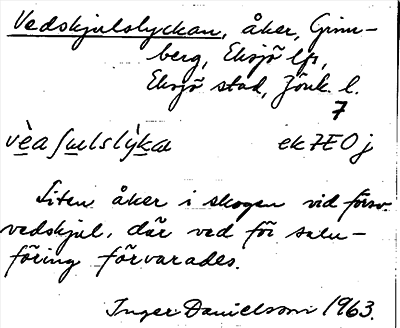 Vedskjulslyckan, åker, Grinn-
berg, Eksjö lfs,
Eksjö stad, Jönk. l.
7
vèa ʃu̲lslỳk̲a ek 7E0j
Liten åker i skogen vid försv.
vedskjul, där ved för salu-
föring förvarades.
Inger Danielsson 1963.